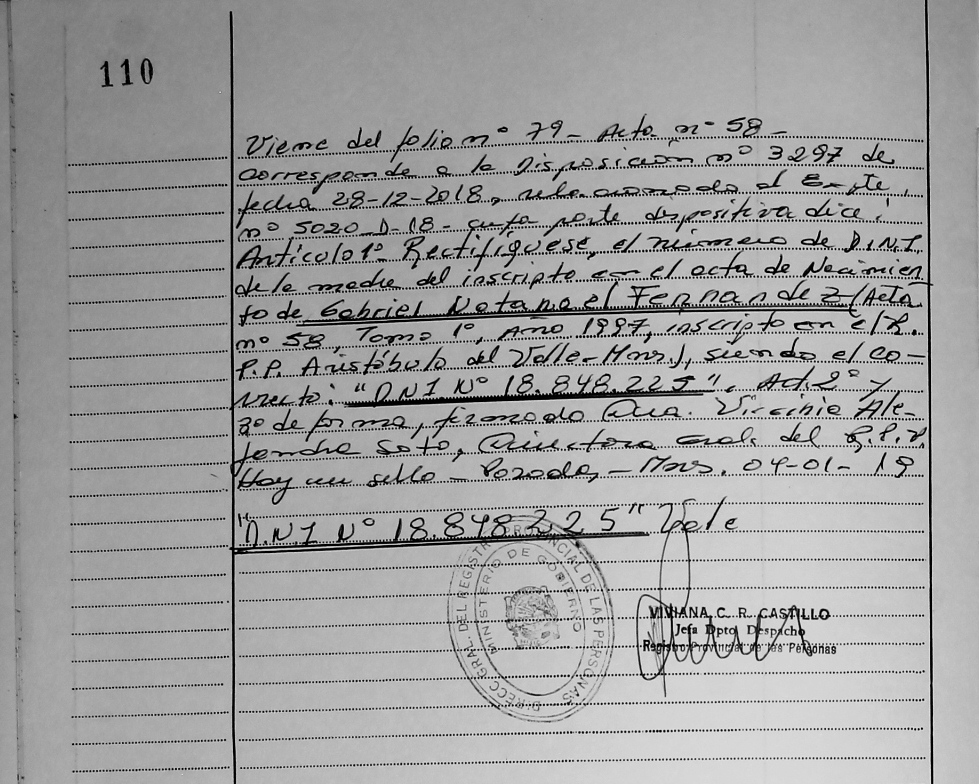 110
Viene del folio nº 79 - Acta nº 58 -
corresponde a la Disposición nº 3297 de
fecha 28-12-2018, relacionado al Expte.
nº 5020-D-18- cuya parte dispositiva dice:
Artículo 1º- Rectifíquese, el número de D.N.I.
de la madre del inscripto en el acta de Nacimien
to de Gabriel Natanael Fernandez (Acta
nº 58, Tomo 1º, Año 1997, inscripto en el R.
P.P. Aristóbulo del Valle-Mnes.), siendo el co-
rrecto: "DNI Nº 18.848.225". Art. 2º y
3º de forma, firmado Dra. Virginia Ale-
jandra Soto, Directora Gral. del R.P.P.
Hay un sello - Posadas, - Mnes. 04-01-19
"D.N.I Nº 18.848.225" Vale
DIRECC. GRAL. DEL REGISTRO PROVINCIAL DE LAS PERSONAS
MINISTERIO DE GOBIERNO
VIVIANA C. R. CASTILLO
Jefa Dpto Despacho
Registro Provincial de las Personas